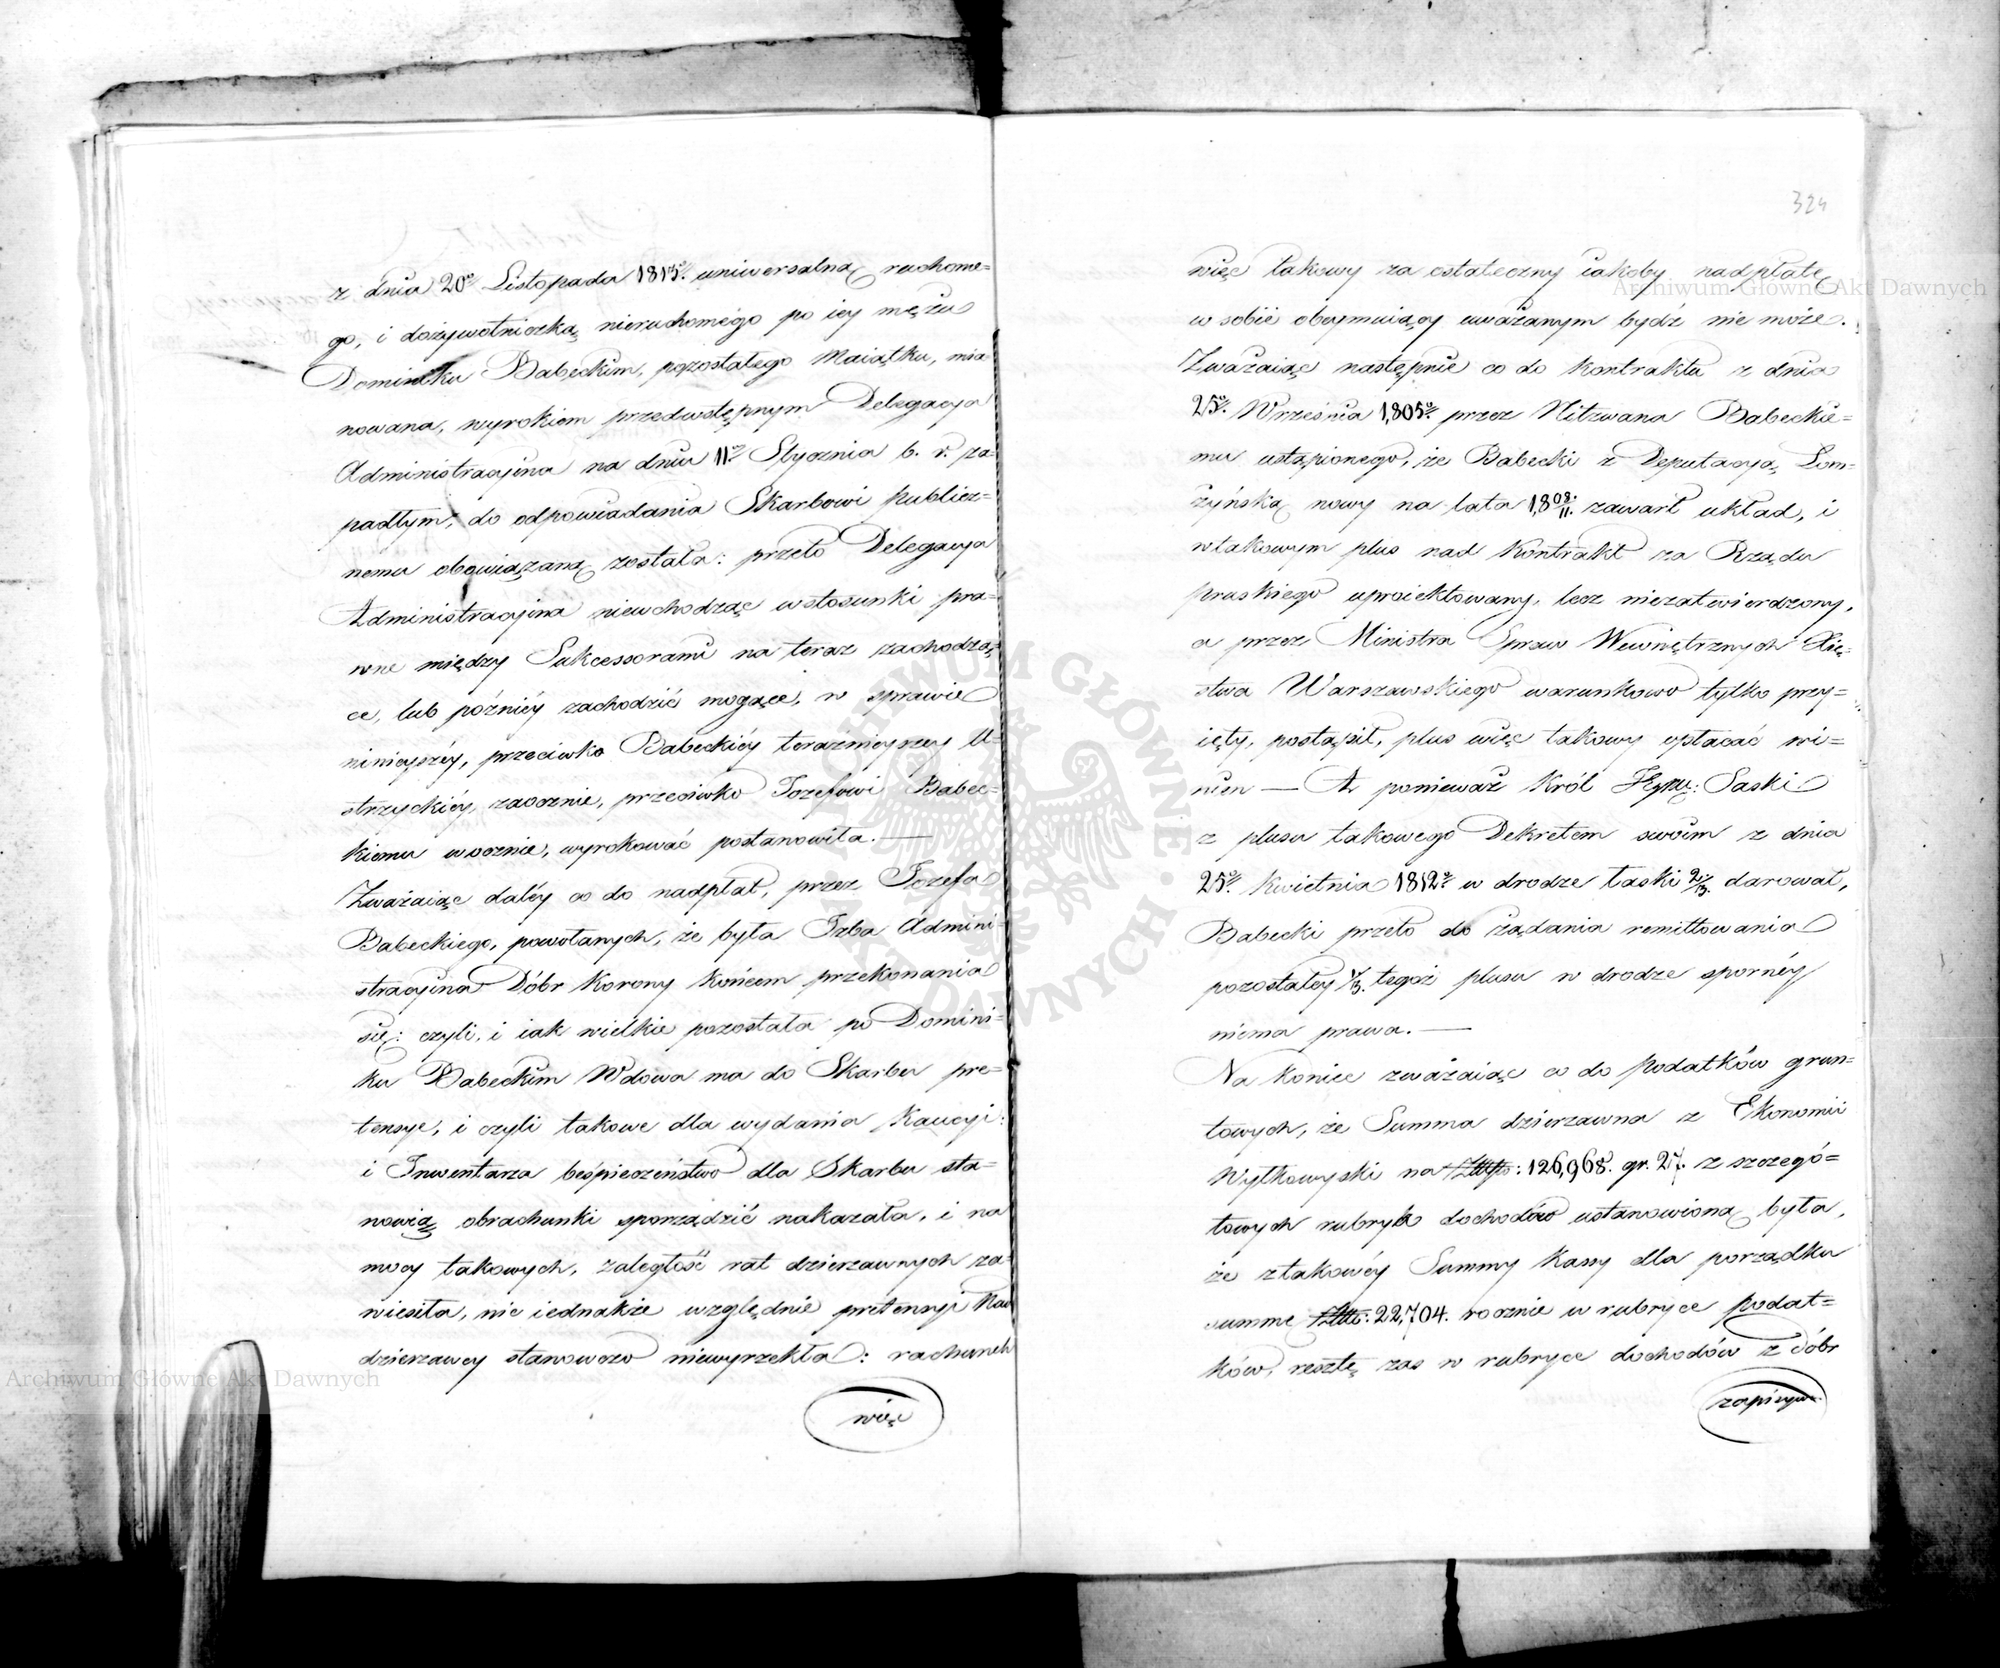 z dnia 20º Listopada 1815º. uniwersalną ruchome=
go, i dożywotniczką nieruchomego po iey mężu
Dominiku Babeckim, pozostałego Maiątku, mia=
nowana, wyrokiem przedwstępnym Delegacya
Administracyina na dniu 11º Stycznia b. r. za=
padłym, do odpowiadania Skarbowi Publicz=
nemu obowiązaną została: przeto Delegacya
Administracyina niewchodząc wstosunki pra=
wne między Sukcessorami na teraz zachodzą=
ce, lub pózniéy zachodzić mogące, w sprawie
ninieyszéy, przeciwko Babeckiéy teraznieyszey U=
strzyckiéy, zaocznie, przeciwko Jozefowi Babec=
kiemu woocznie, wyrokować postanowiła. —
Zważaiąc daléy co do nadpłat, przez Jozefa
Babeckiego, powołanych, że była Izba Admini=
stracyina Dóbr Korony Końcem przekonania
się: czyli, i iak wielkie pozostała po Domini=
ku Babeckim Wdowa ma do Skarbu pre=
tensye, i czyli takowe dla wydania Kaucyi:
i Inwentarza beśpieczeństwo dla Skarbu sta=
nowią obrachunki sporządzić nakazała, i na
mocy takowych, zaległość rat dzierzawnych za=
wiesiła, nic iednakże względnie pretensyi Nad
dzierzawcy stanowczo niewyrzekła: rachunek
więc
324
więc takowy za ostateczny iakoby nadpłatę
w sobie obeymuiący uważanym bydź nie może.
Zważaiąc następnie co do Kontraktu z dnia
25º. Września 1805º. przez Nitzwana Babeckie=
mu ustąpionego, że Babecki z Deputacyą Łom=
żyńską nowy na lata 1808/11. zawarł układ, i
wtakowym plus nad Kontrakt za Rządu
pruskiego uproiektowany, lecz niezatwierdzony,
a przez Ministra Spraw Wewnętrznych Xię=
stwa Warszawskiego warunkowo tylko przy=
ięty, postąpił, plus więc takowy opłacać wi=
nien — A ponieważ Król Saski
z plusu takowego Dekretem swoim z dnia
25º. Kwietnia 1812º w drodze łaski 2/3. darował,
Babecki przeto do żądania remittowania
pozostałey 1/3. tegoż plusu w drodze spornéy
niema prawa. —
Na koniec zważaiąc co do Podatków grun=
towych, że Summa dzierzawna z Ekonomii
Wytkowyski na Złłp: 126,968. gr. 27. z szczegó=
łowych rubryk dochodów ustanowiona była,
że ztakowéy Summy Kassy dla porządku
summę Złłp: 22,704. rocznie w rubryce podat=
ków, resztę zas w rubryce dochodów z dóbr
Archiwum Główne Akt Dawnych
Archiwum Główne Akt Dawnych
ARCHIWUM GŁÓWNE AKT DAWNYCH